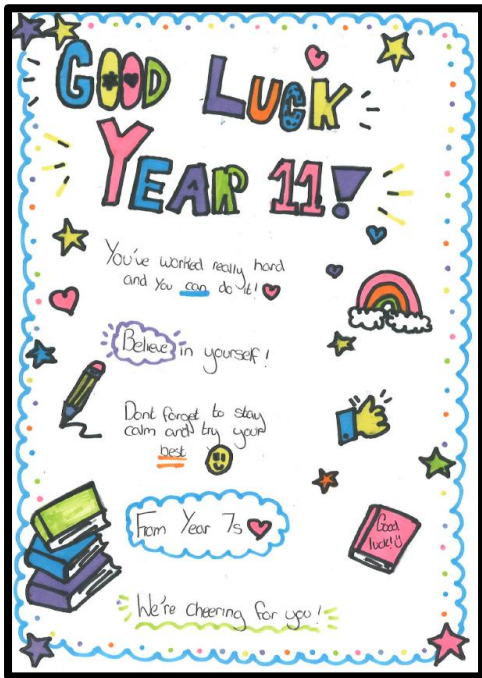 GOOD LUCK
YEAR 11!
You've worked really hard
and you can do it!
Believe in yourself!
Dont forget to stay
calm and try your
best
From Year 7s
Good
luck!
We're cheering for you!